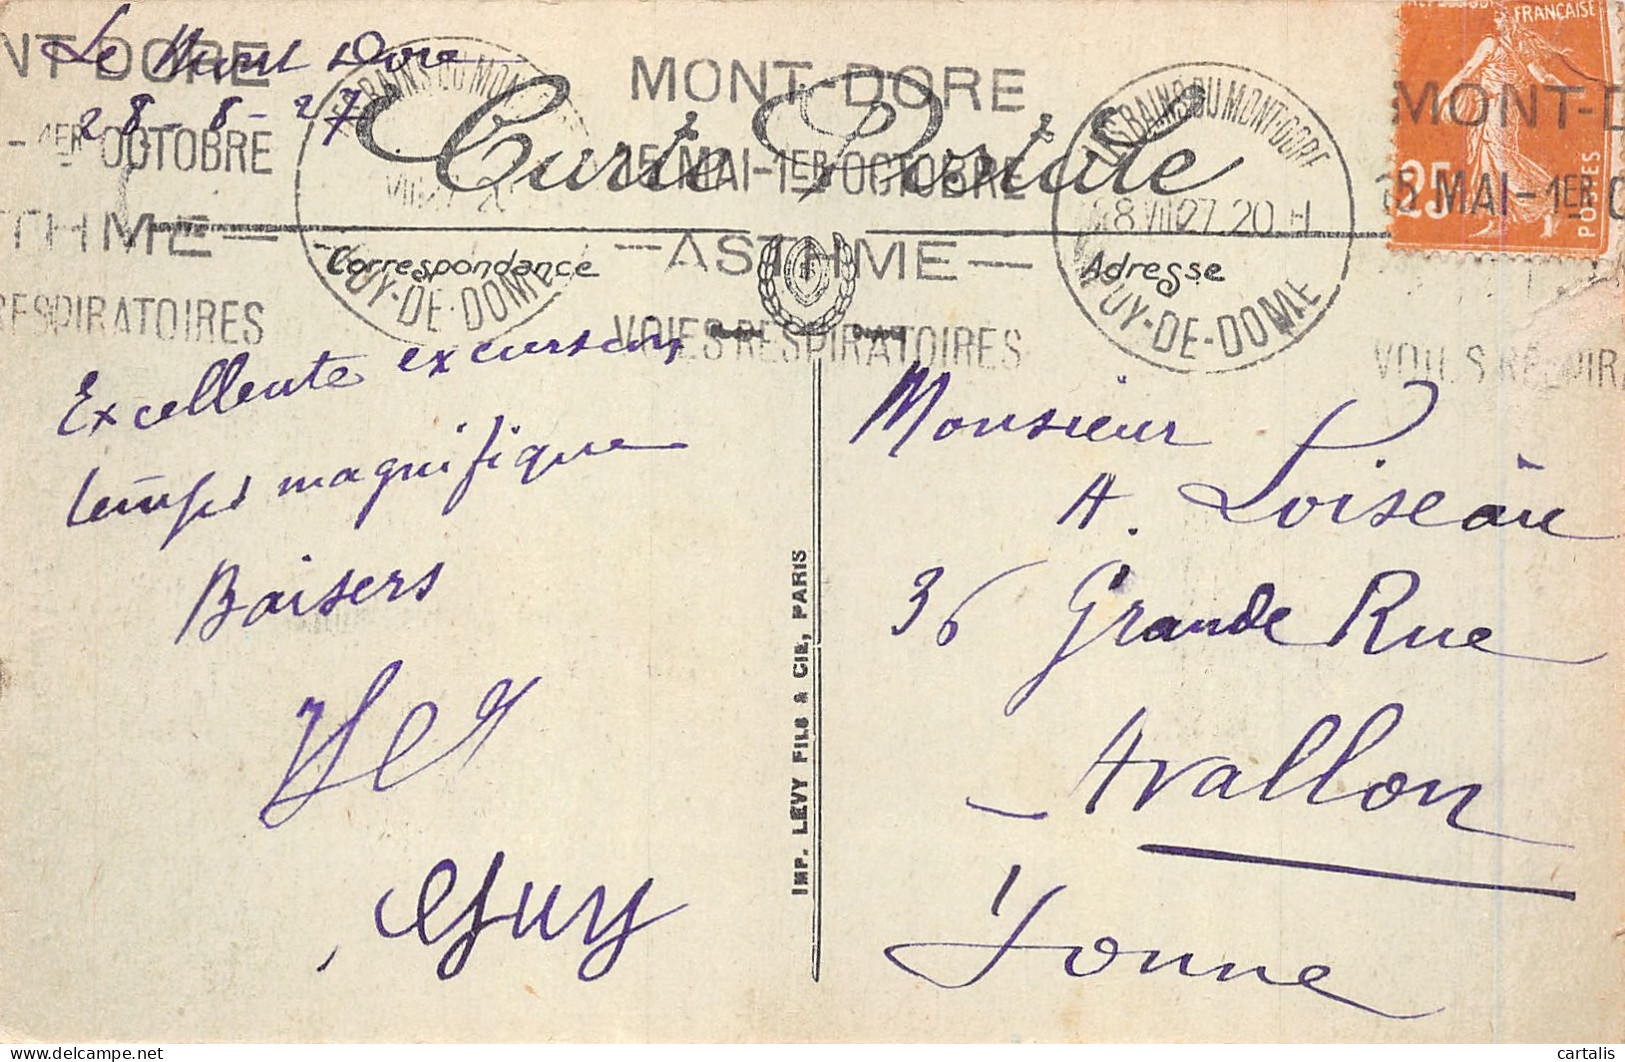 Le Mont Dore
28-8-27
Carte Postale
NT-DORE
-1ER OCTOBRE
THME-
RESPIRATOIRES
LES BAINS DU MONT
VIII 27 20
PUY-DE-DOME
MONT-DORE
15 MAI-1ER OCTOBRE
-ASTHME-
VOIES RESPIRATOIRES
LES BAINS DU MONT-DORE
28 VIII 27 20 H
PUY-DE-DOME
FRANÇAISE
25
POSTES
MONT-D
15 MAI-1ER O
VOIES RESPIRA
Correspondance
Adresse
Excellente excursion
temps magnifique
Baisers
Guy
IMP. LÉVY FILS & CIE, PARIS
Monsieur
A. Loiseau
36 Grande Rue
Avallon
Yonne
cartalis